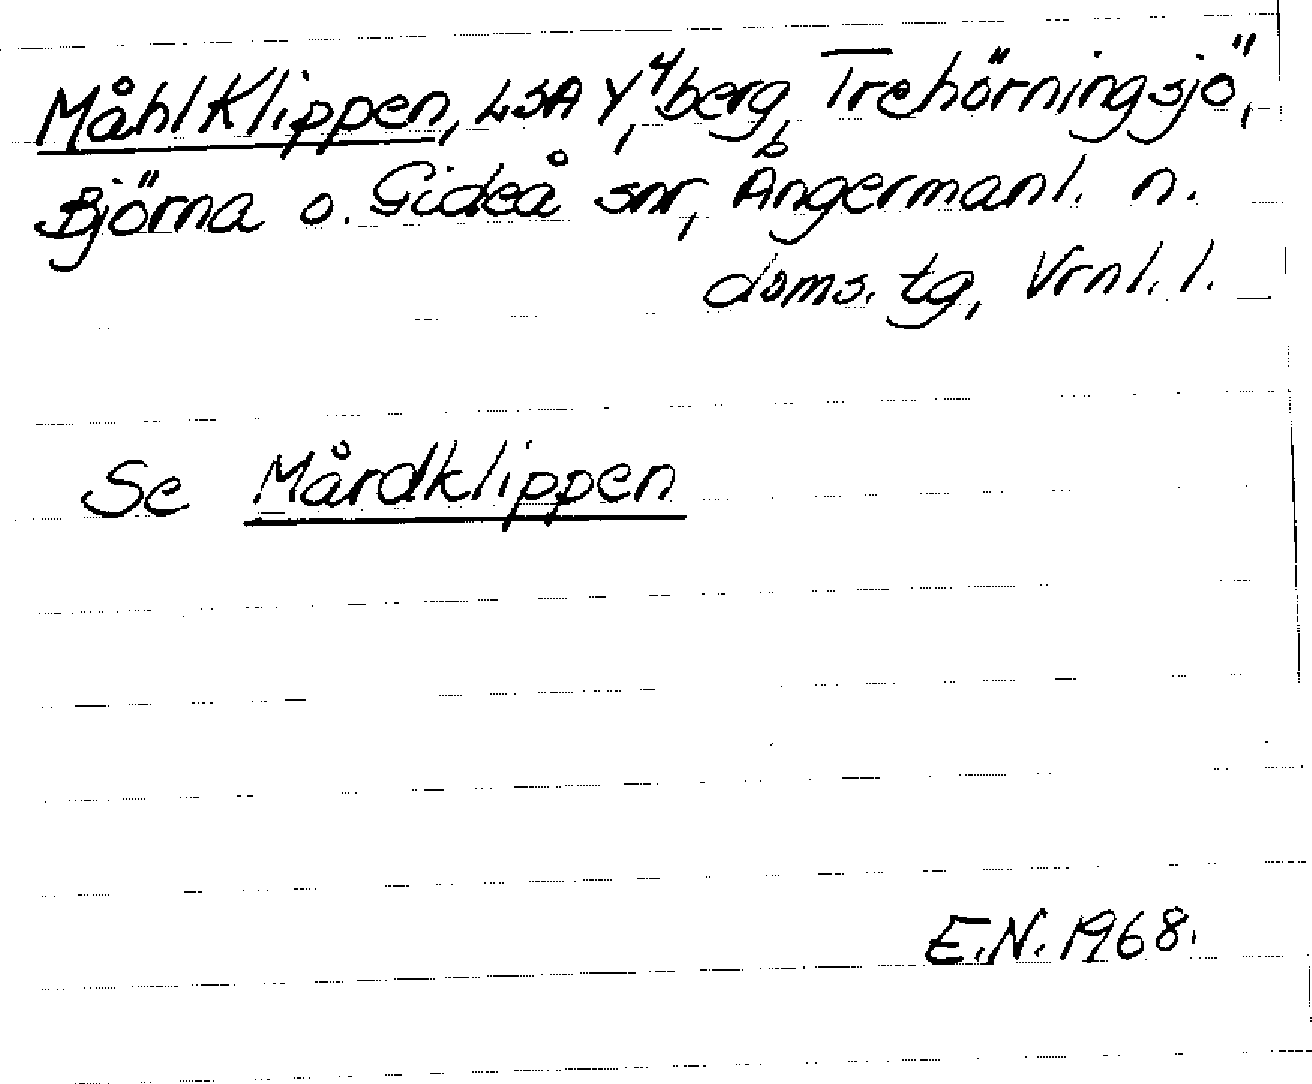 Måhlklippen, LSA Y,⁴ berg, Trehörningsjö,
Björna o. Gideå snr, Ångermanl. n.
doms. tg, Vrnl. l.
Se Mårdklippen
E.N. 1968.